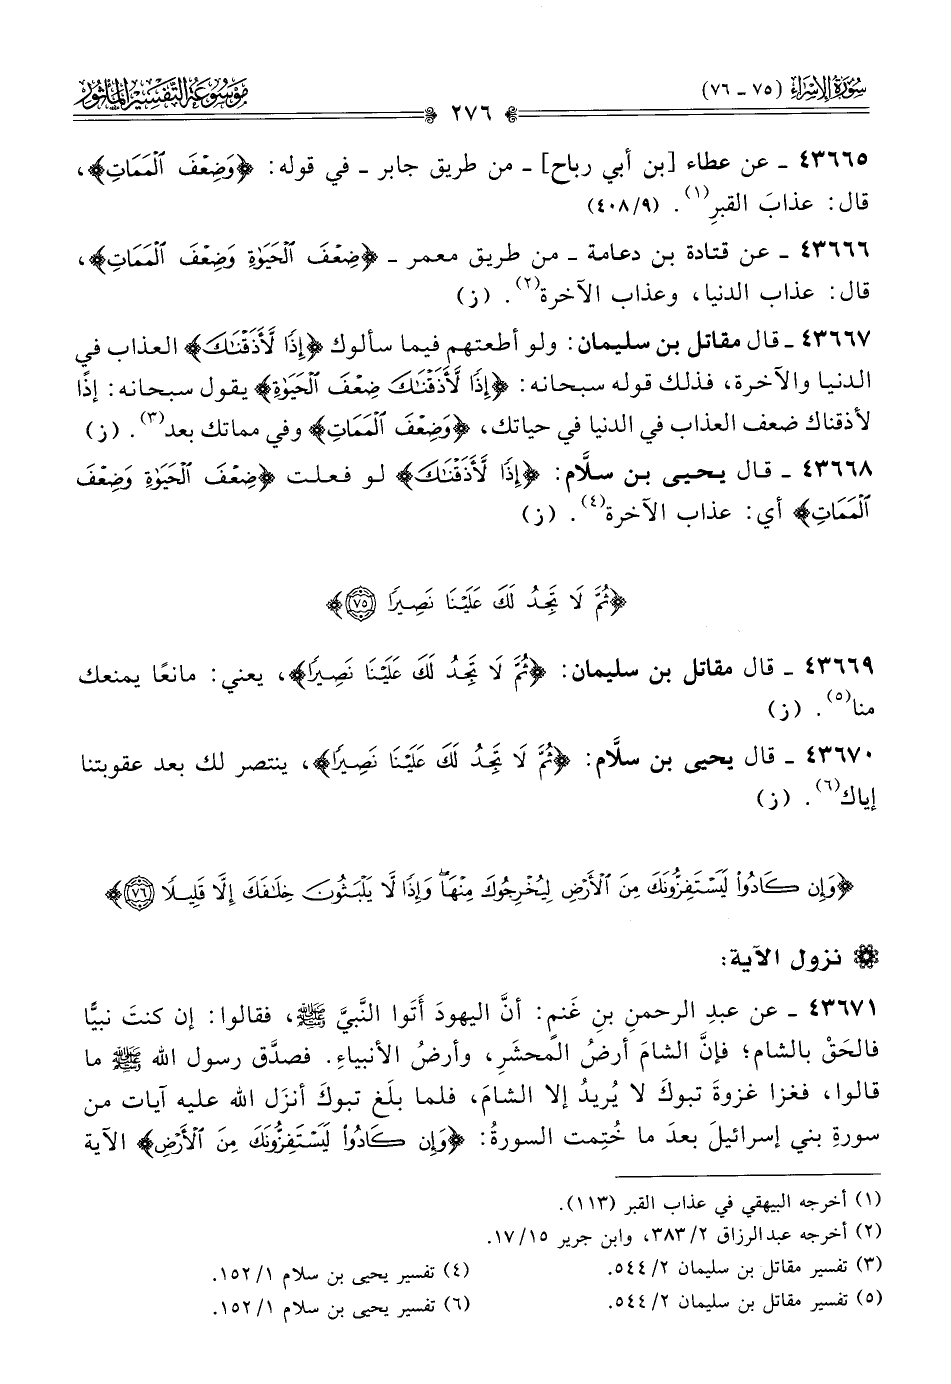 سُورَةُ الإِسْرَاءِ (٧٥ - ٧٦)
٢٧٦
مَوْسُوعَةُ التَّفْسِيرِ المَأْثُور
٤٣٦٦٥ - عن عطاء [بن أبي رباح] - من طريق جابر - في قوله: ﴿وَضِعْفَ ٱلْمَمَاتِ﴾،
قال: عذابَ القبرِ(١). (٩/ ٤٠٨)
٤٣٦٦٦ - عن قتادة بن دعامة - من طريق معمر - ﴿ضِعْفَ ٱلْحَيَوٰةِ وَضِعْفَ ٱلْمَمَاتِ﴾،
قال: عذاب الدنيا، وعذاب الآخرة(٢). (ز)
٤٣٦٦٧ - قال مقاتل بن سليمان: ولو أطعتهم فيما سألوك ﴿إِذًا لَّأَذَقْنَٰكَ﴾ العذاب في
الدنيا والآخرة، فذلك قوله سبحانه: ﴿إِذًا لَّأَذَقْنَٰكَ ضِعْفَ ٱلْحَيَوٰةِ﴾ يقول سبحانه: إذًا
لأذقناك ضعف العذاب في الدنيا في حياتك، ﴿وَضِعْفَ ٱلْمَمَاتِ﴾ وفي مماتك بعد(٣). (ز)
٤٣٦٦٨ - قال يحيى بن سلَّام: ﴿إِذًا لَّأَذَقْنَٰكَ﴾ لو فعلت ﴿ضِعْفَ ٱلْحَيَوٰةِ وَضِعْفَ
ٱلْمَمَاتِ﴾ أي: عذاب الآخرة(٤). (ز)
﴿ثُمَّ لَا تَجِدُ لَكَ عَلَيْنَا نَصِيرًا ٧٥﴾
٤٣٦٦٩ - قال مقاتل بن سليمان: ﴿ثُمَّ لَا تَجِدُ لَكَ عَلَيْنَا نَصِيرًا﴾، يعني: مانعًا يمنعك
منا(٥). (ز)
٤٣٦٧٠ - قال يحيى بن سلَّام: ﴿ثُمَّ لَا تَجِدُ لَكَ عَلَيْنَا نَصِيرًا﴾، ينتصر لك بعد عقوبتنا
إياك(٦). (ز)
﴿وَإِن كَادُوا۟ لَيَسْتَفِزُّونَكَ مِنَ ٱلْأَرْضِ لِيُخْرِجُوكَ مِنْهَا ۖ وَإِذًا لَّا يَلْبَثُونَ خِلَٰفَكَ إِلَّا قَلِيلًا ٧٦﴾
نزول الآية:
٤٣٦٧١ - عن عبدِ الرحمنِ بنِ غَنمٍ: أنَّ اليهودَ أَتَوا النَّبيَّ ﷺ، فقالوا: إن كنتَ نبيًّا
فالحَقْ بالشام؛ فإنَّ الشامَ أرضُ المحشَرِ، وأرضُ الأنبياءِ. فصدَّق رسول الله ﷺ ما
قالوا، فغزا غزوةَ تبوكَ لا يُريدُ إلا الشامَ، فلما بلَغ تبوكَ أنزَل الله عليه آيات من
سورةِ بني إسرائيلَ بعدَ ما خُتِمت السورةُ: ﴿وَإِن كَادُوا۟ لَيَسْتَفِزُّونَكَ مِنَ ٱلْأَرْضِ﴾ الآية
(١) أخرجه البيهقي في عذاب القبر (١١٣).
(٢) أخرجه عبدالرزاق ٢/ ٣٨٣، وابن جرير ١٥/ ١٧.
(٣) تفسير مقاتل بن سليمان ٢/ ٥٤٤. (٤) تفسير يحيى بن سلام ١/ ١٥٢.
(٥) تفسير مقاتل بن سليمان ٢/ ٥٤٤. (٦) تفسير يحيى بن سلام ١/ ١٥٢.